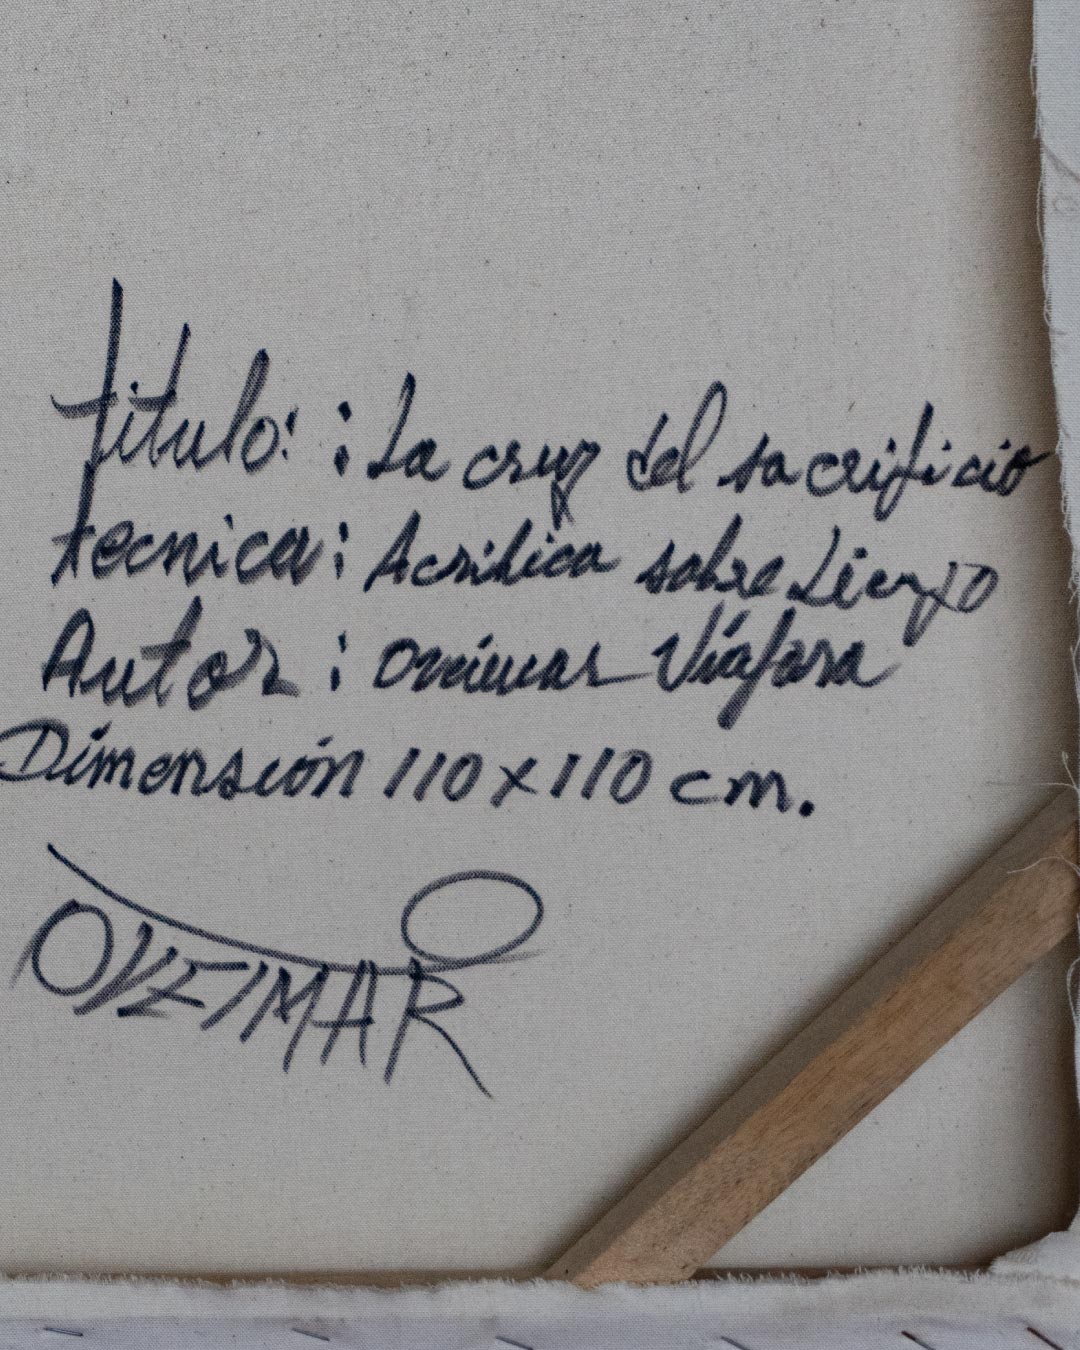 Titulo: : La cruz del sacrificio
Tecnica: Acrilica sobre Lienzo
Autor: Oveimar Viáfara
Dimensión 110 x 110 cm.
OVEIMAR